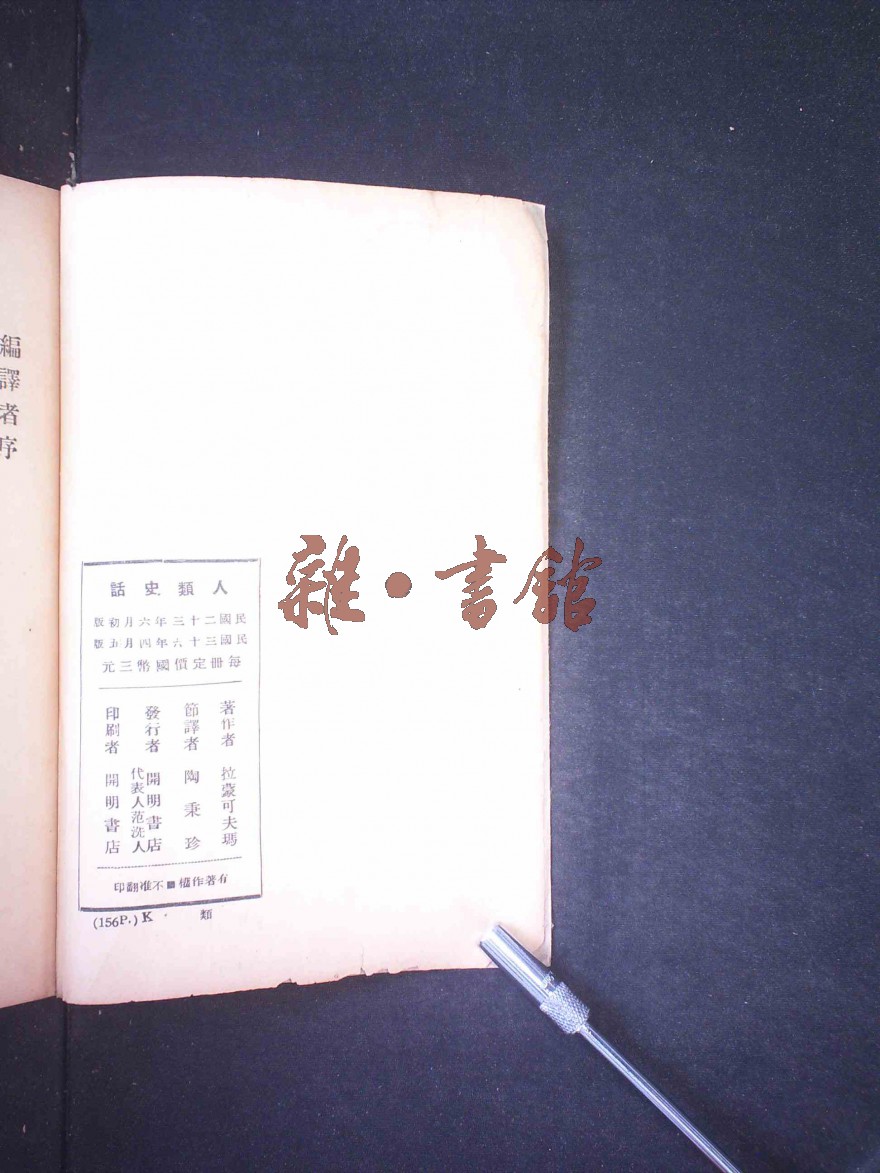 編譯者序
人類史話
民國二十三年六月初版
民國三十六年四月五版
每冊定價國幣三元
著作者 拉蒙可夫瑪
節譯者 陶秉珍
發行者 開明書店
代表人范洗人
印刷者 開明書店
有著作權不准翻印
(156P.) K 類
雜•書館